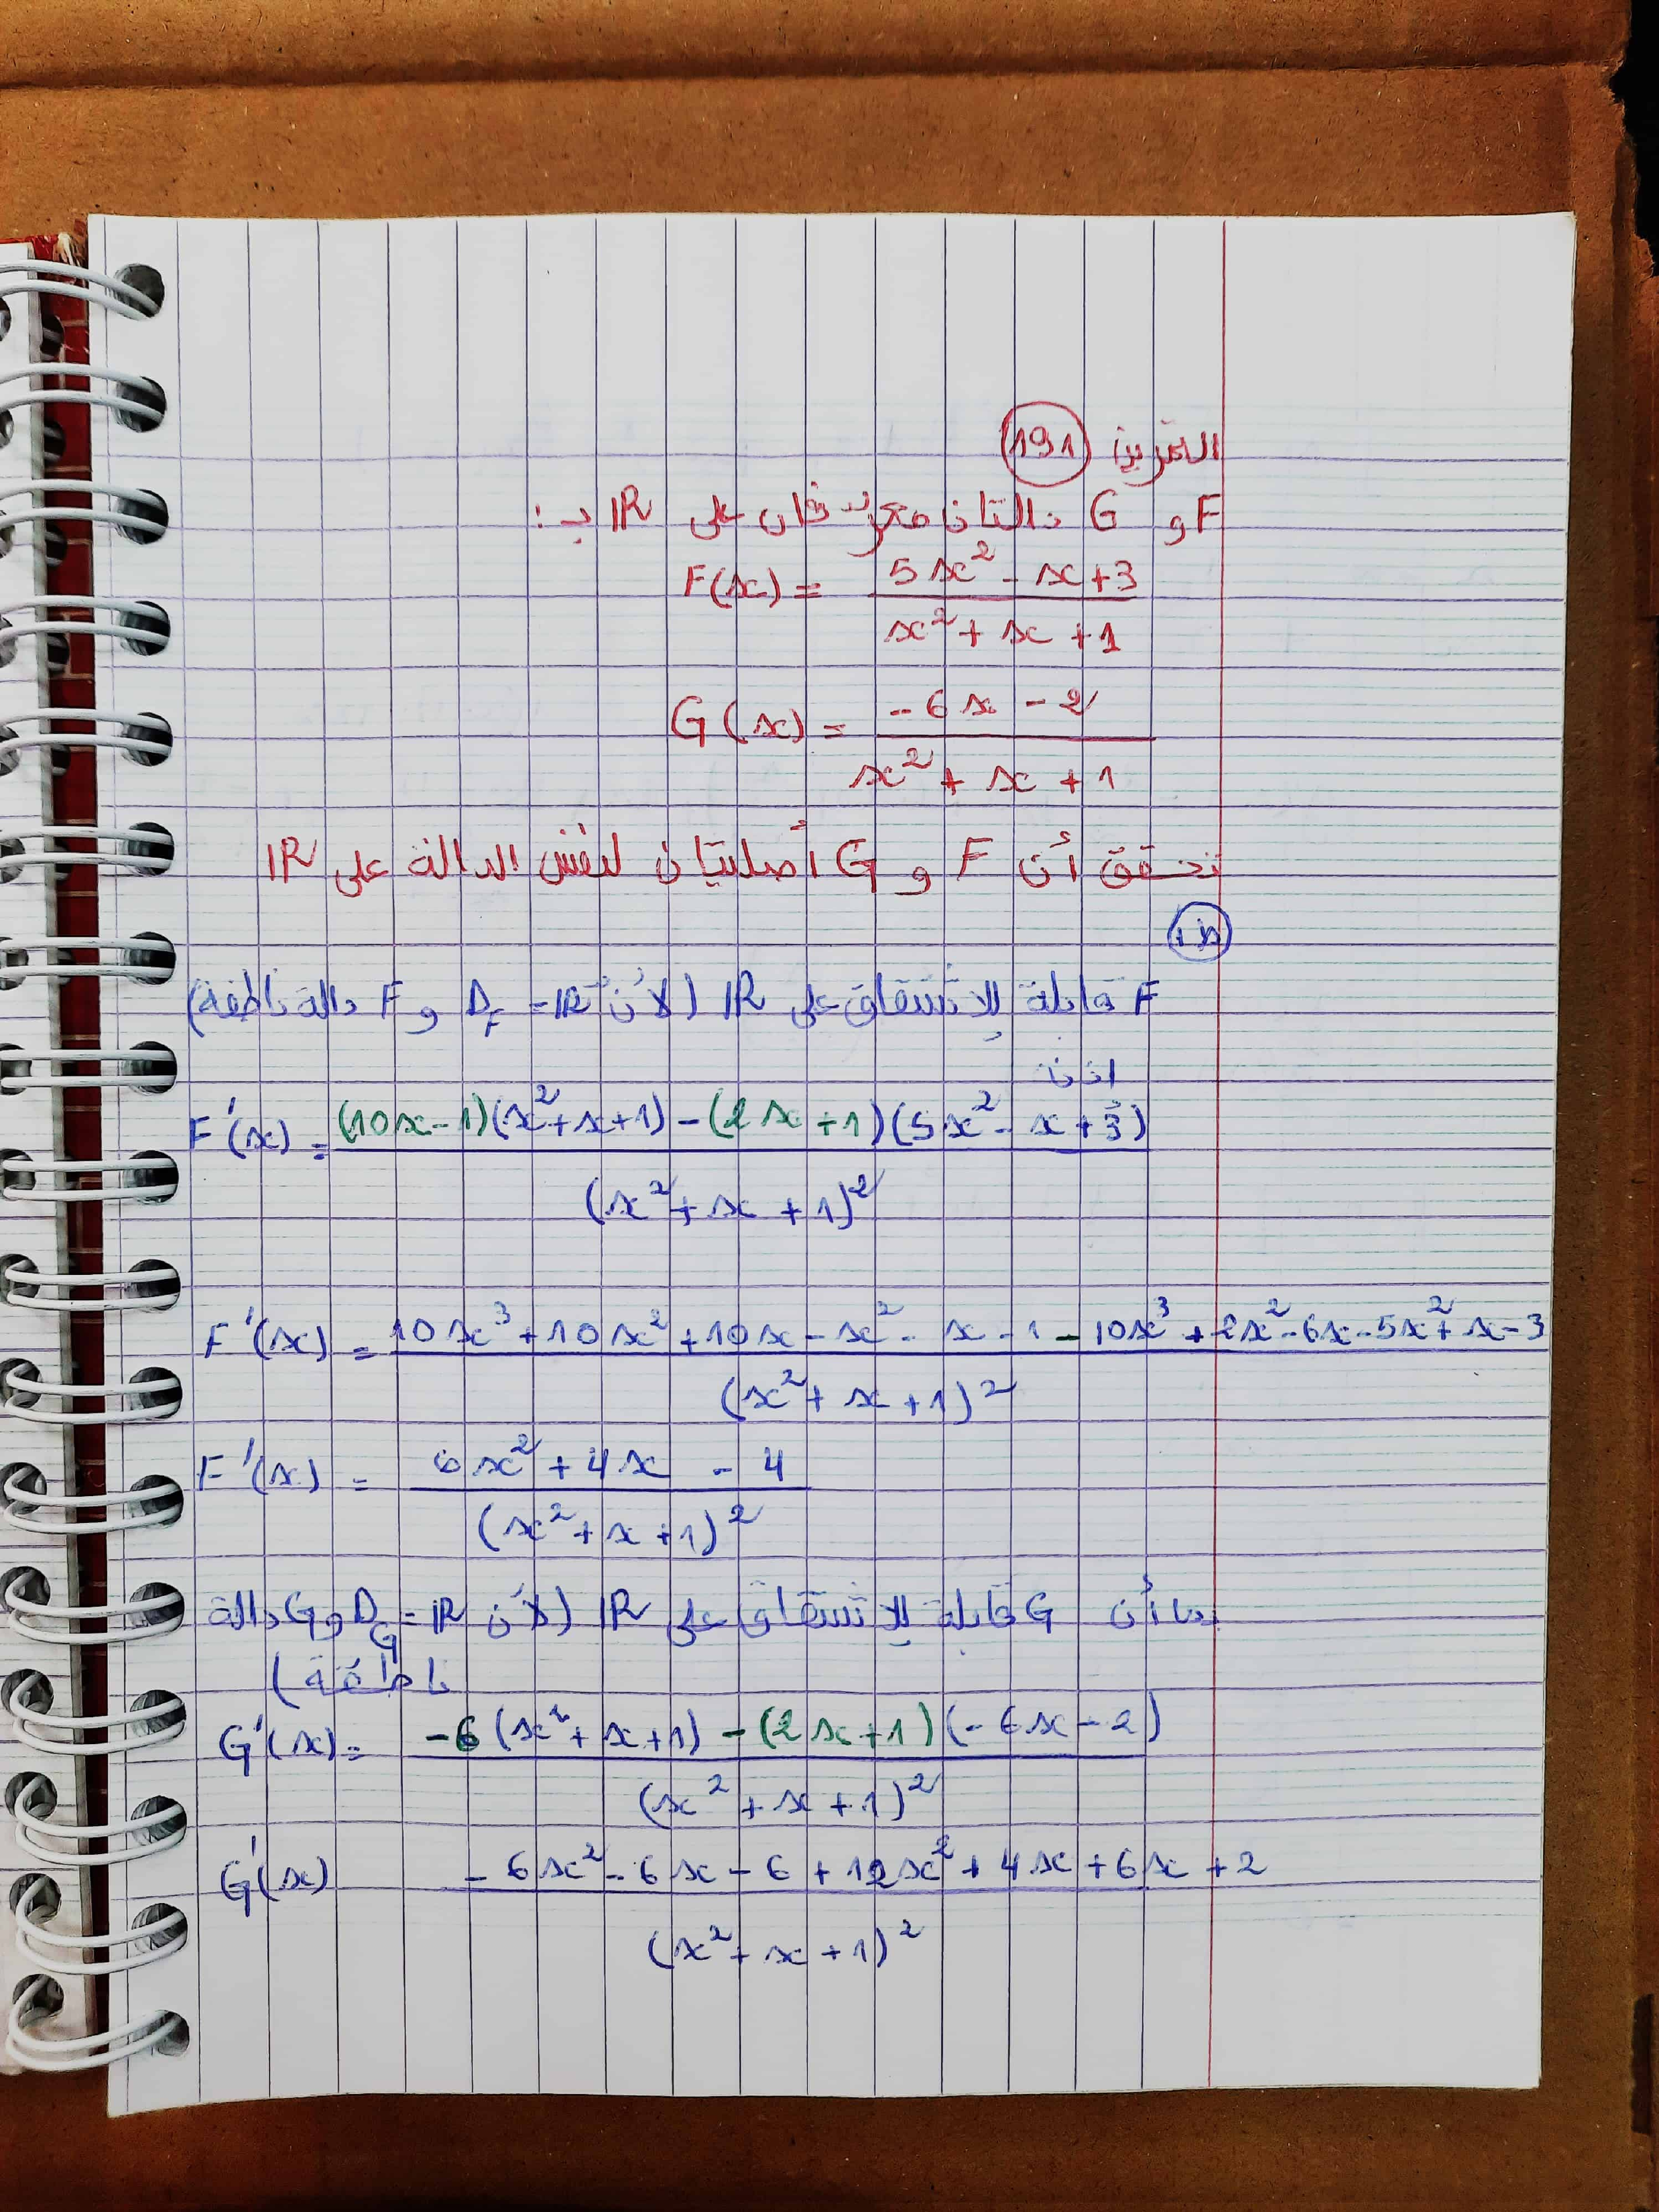 التمرين 191
F و G دالتان معرفتان على IR ب :
F(x) = (5x² - x + 3) / (x² + x + 1)
G(x) = (-6x - 2) / (x² + x + 1)
تحقق أن F و G أصليتان لنفس الدالة على IR
ط1
F قابلة للاشتقاق على IR (لأن D_F = IR و F دالة ناطقة)
اذن
F'(x) = ((10x-1)(x²+x+1) - (2x+1)(5x² - x+3)) / (x² + x + 1)²
F'(x) = (10x³ + 10x² + 10x - x² - x - 1 - 10x³ + 2x² - 6x - 5x² + x - 3) / (x² + x + 1)²
F'(x) = (6x² + 4x - 4) / (x² + x + 1)²
بما أن G قابلة للاشتقاق على IR (لأن D_G = IR و G دالة
ناطقة)
G'(x) = (-6(x² + x+1) - (2x+1)(-6x-2)) / (x² + x + 1)²
G'(x) (-6x² - 6x - 6 + 12x² + 4x + 6x + 2) / (x² + x + 1)²